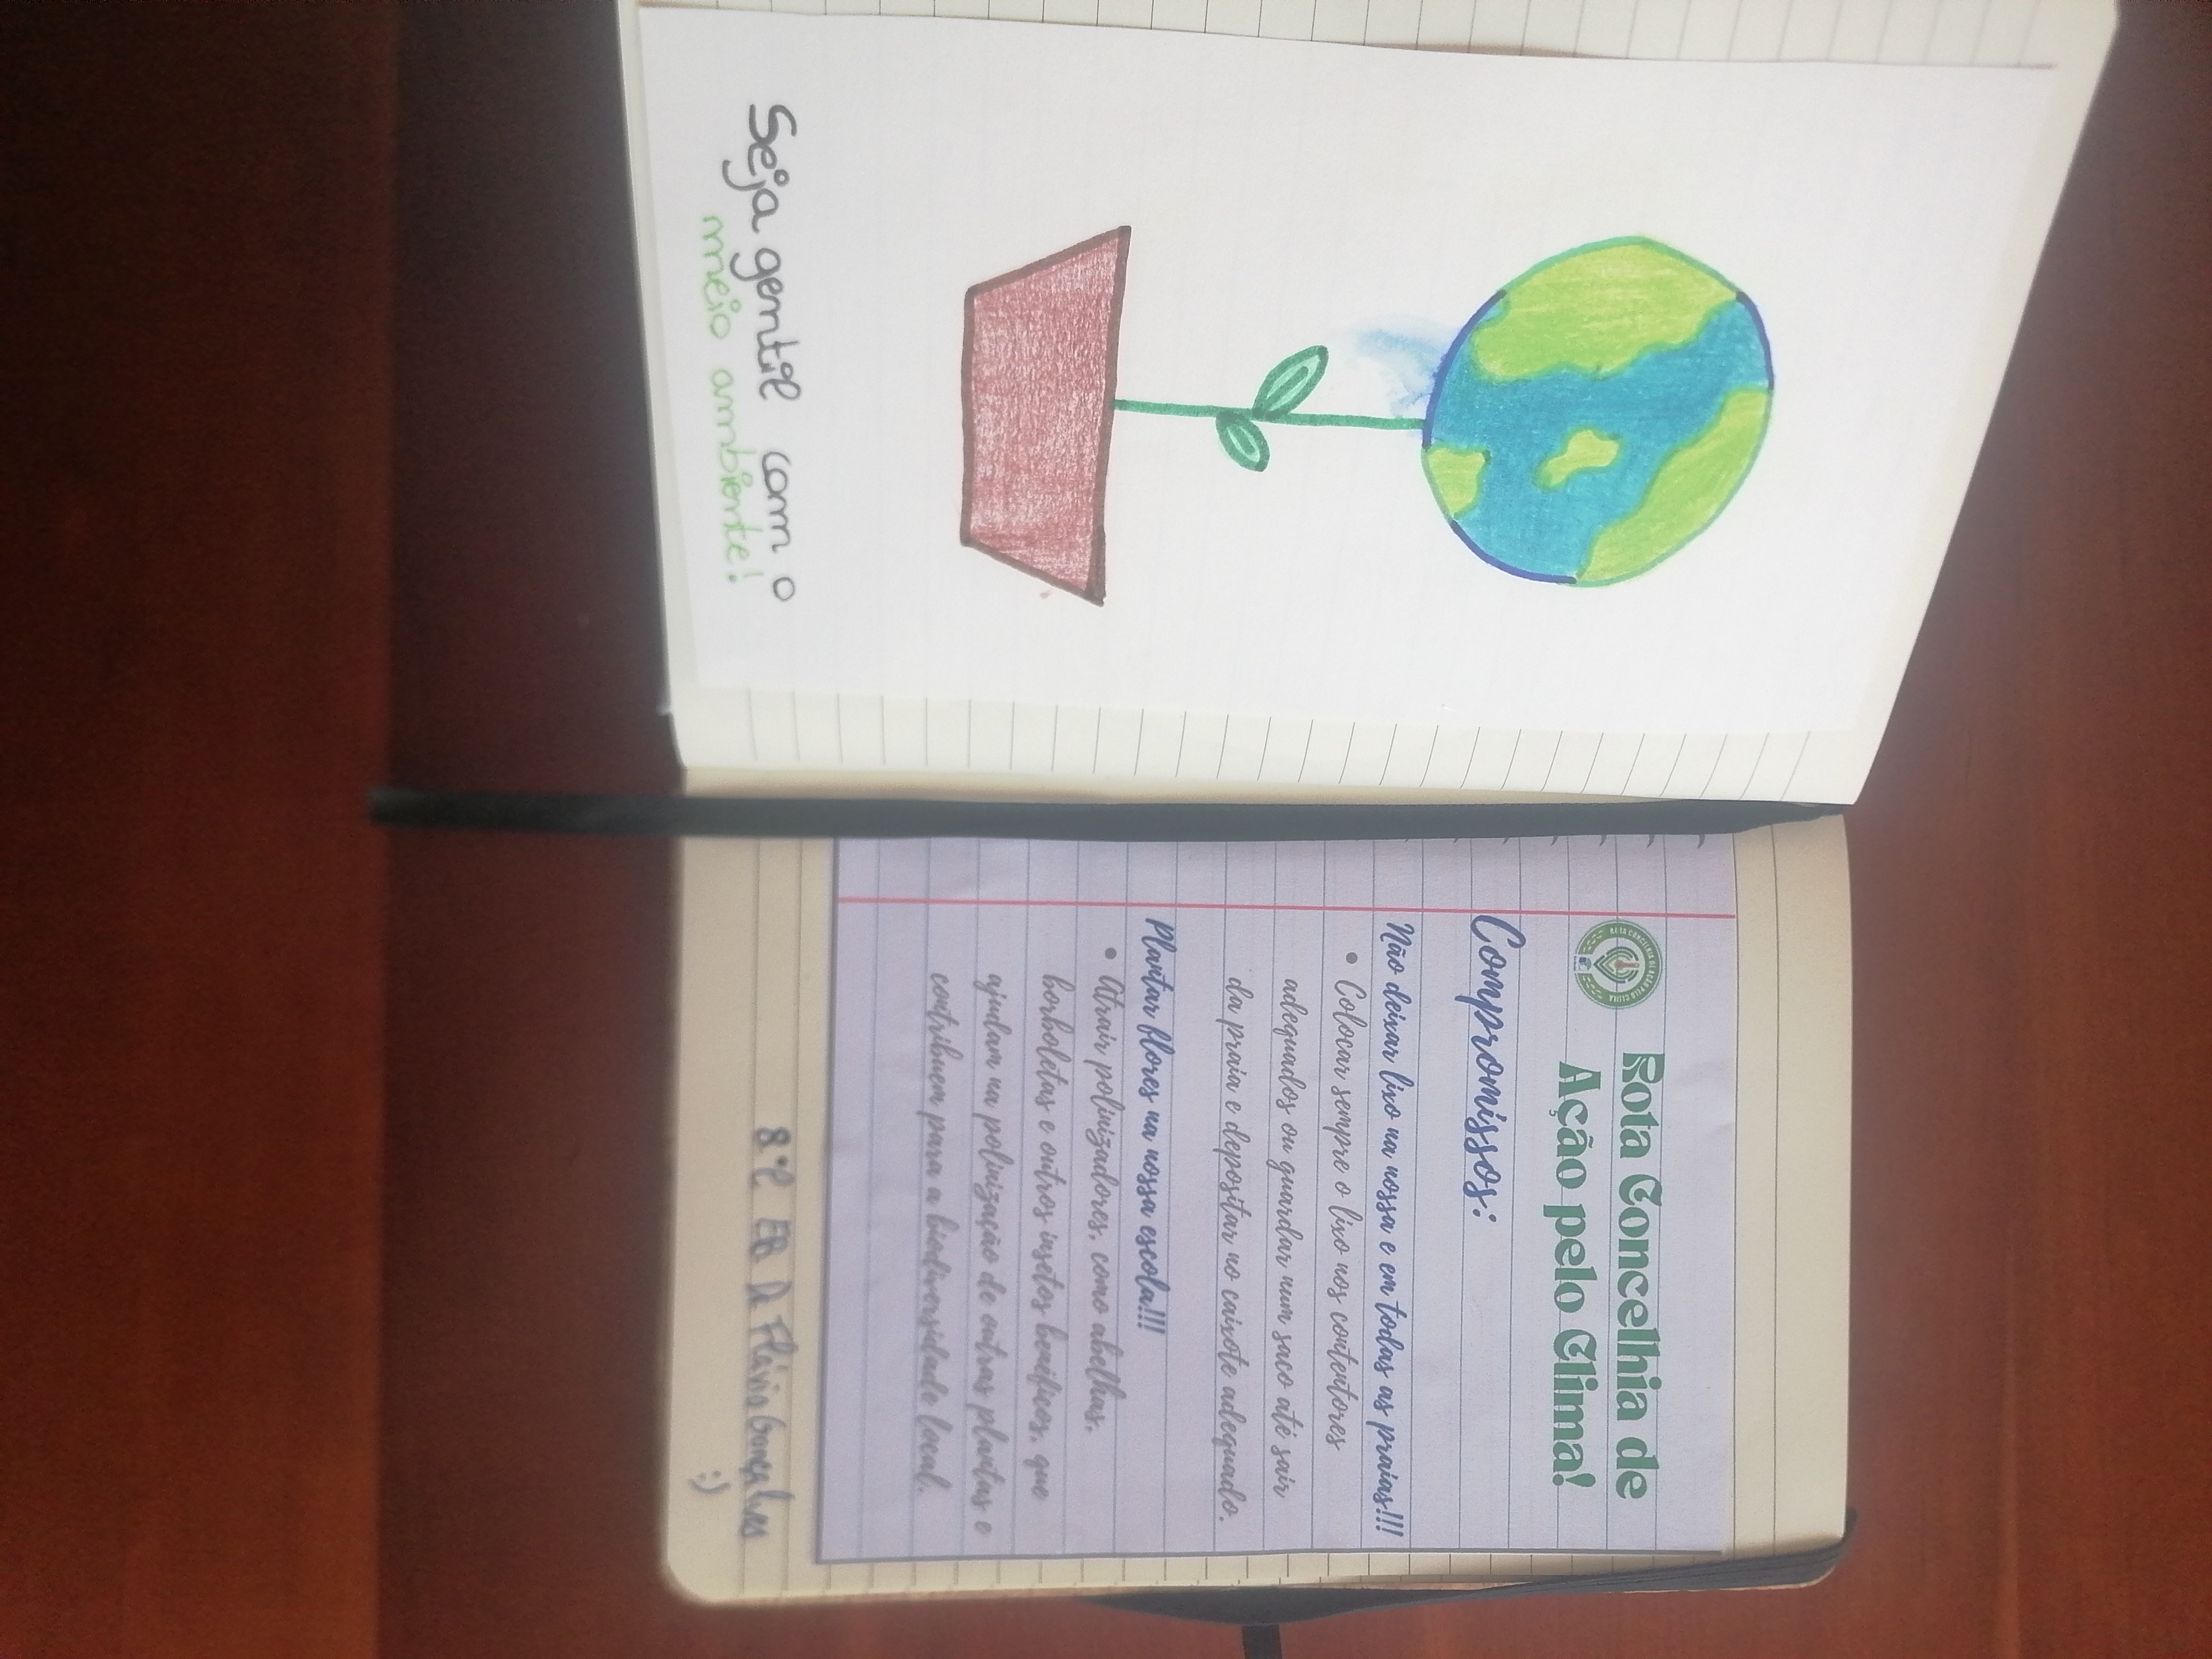 Seja gentil com o
meio ambiente!
ROTA CONCELHIA DE AÇÃO PELO CLIMA
Rota Concelhia de
Ação pelo Clima!
Compromissos:
Não deixar lixo na nossa e em todas as praias!!!
• Colocar sempre o lixo nos contentores
adequados ou guardar num saco até sair
da praia e depositar no caixote adequado.
Plantar flores na nossa escola!!!
• Atrair polinizadores, como abelhas,
borboletas e outros insetos benéficos, que
ajudam na polinização de outras plantas e
contribuem para a biodiversidade local.
8ºE EB Dr Flávio Gonçalves
:)